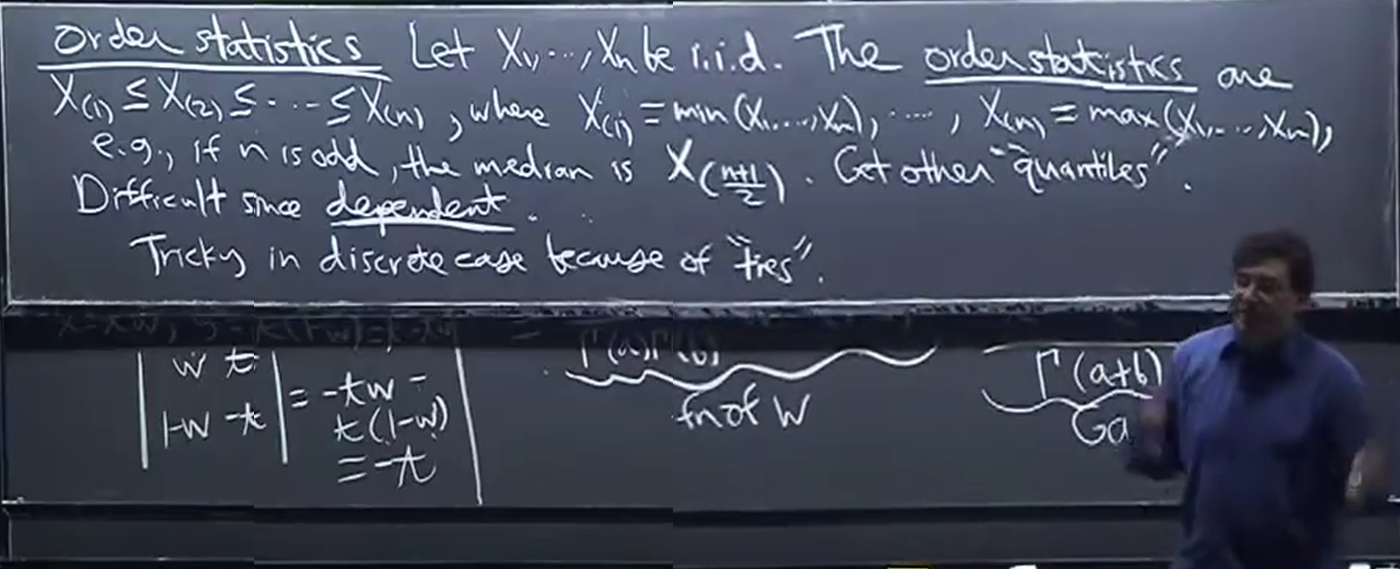 Order statistics Let X₁,...,Xₙ be i.i.d. The order statistics are
X₍₁₎ ≤ X₍₂₎ ≤ ... ≤ X₍ₙ₎, where X₍₁₎ = min(X₁,...,Xₙ), ..., X₍ₙ₎ = max(X₁,...,Xₙ),
e.g., if n is odd, the median is X₍(n+1)/2₎. Get other "quantiles".
Difficult since dependent.
Tricky in discrete case because of "ties".
Γ(a)Γ(b)
w t = -tw -
1-w -t t(1-w)
= -t
fn of W
Γ(a+b)
Ga